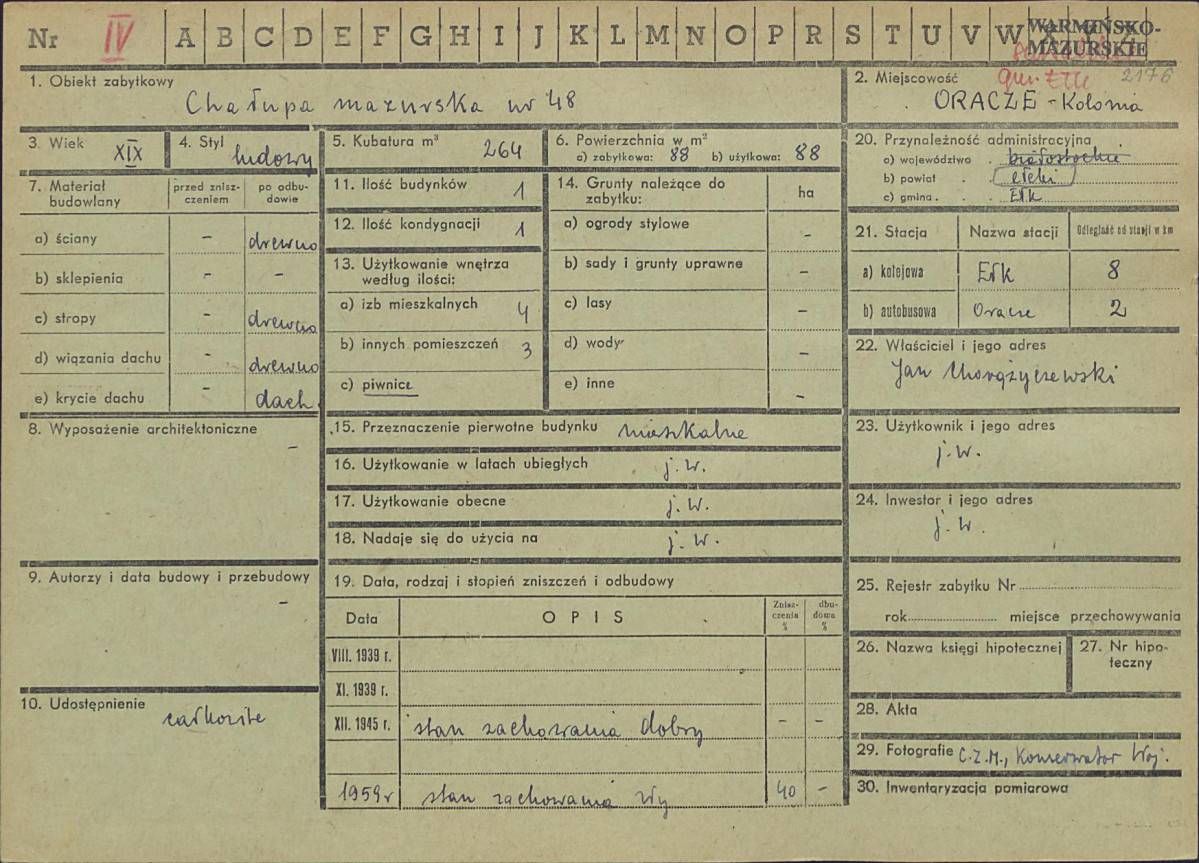 Nr IV A B C D E F G H I J K L M N O P R S T U V W
WARMIŃSKO-
MAZURSKIE
gm. Ełk 2176
1. Obiekt zabytkowy
Chałupa mazurska nr 48
2. Miejscowość
ORACZE - Kolonia
3. Wiek XIX
4. Styl ludowy
5. Kubatura m³ 264
6. Powierzchnia w m²
a) zabytkowa: 88 b) użytkowa: 88
20. Przynależność administracyjna
a) województwo białostockie
b) powiat ełcki
c) gmina Ełk
7. Materiał budowlany
przed zniszczeniem
po odbudowie
a) ściany - drewno
b) sklepienia - -
c) stropy - drewno
d) wiązania dachu - drewno
e) krycie dachu - dach.
11. Ilość budynków 1
12. Ilość kondygnacji 1
13. Użytkowanie wnętrza
według ilości:
a) izb mieszkalnych 4
b) innych pomieszczeń 3
c) piwnice
14. Grunty należące do
zabytku:
ha
a) ogrody stylowe -
b) sady i grunty uprawne -
c) lasy -
d) wody -
e) inne -
21. Stacja Nazwa stacji Odległość od stacji w km
a) kolejowa Ełk 8
b) autobusowa Oracze 2
22. Właściciel i jego adres
Jan Chorążyczewski
8. Wyposażenie architektoniczne
-
15. Przeznaczenie pierwotne budynku mieszkalne
16. Użytkowanie w latach ubiegłych j.w.
17. Użytkowanie obecne j.w.
18. Nadaje się do użycia na j.w.
23. Użytkownik i jego adres
j.w.
24. Inwestor i jego adres
j.w.
9. Autorzy i data budowy i przebudowy
-
19. Data, rodzaj i stopień zniszczeń i odbudowy
Data OPIS Zniszczenia % dbudowa %
VIII. 1939 r.
XI. 1939 r.
XII. 1945 r. stan zachowania dobry - -
1959 r stan zachowania zły 40 -
10. Udostępnienie
całkowite
25. Rejestr zabytku Nr
rok miejsce przechowywania
26. Nazwa księgi hipotecznej
27. Nr hipoteczny
28. Akta
29. Fotografie C.Z.M., Konserwator Woj.
30. Inwentaryzacja pomiarowa